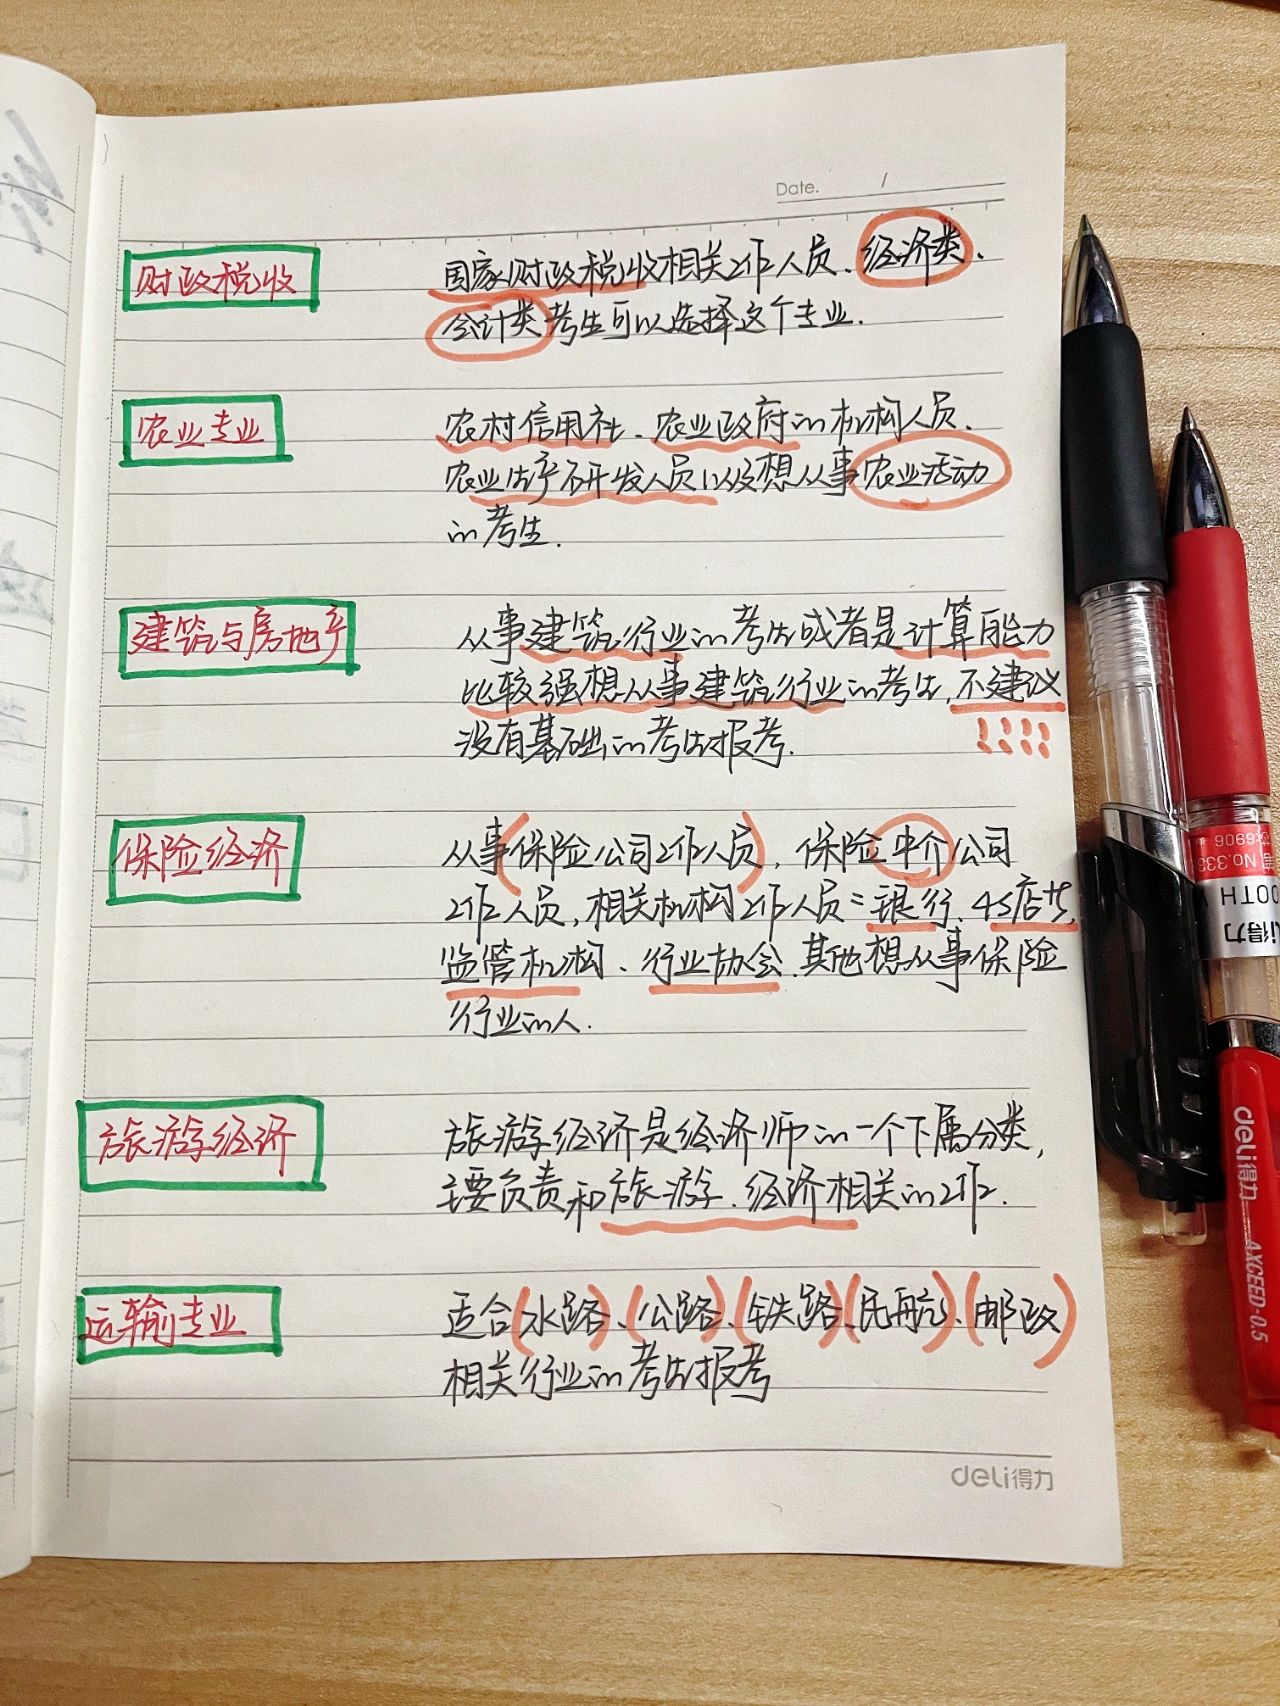 Date. /
财政税收
国家财政税收相关工作人员、经济类、
会计类考生可以选择这个专业.
农业专业
农村信用社、农业政府的机构人员、
农业生产研发人员以及想从事农业活动
的考生.
建筑与房地产
从事建筑行业的考生或者是计算能力
比较强想从事建筑行业的考生,不建议
没有基础的考生报考.
!!!!
保险经济
从事(保险公司工作人员),保险中介公司
工作人员,相关机构工作人员=银行、4S店等,
监管机构、行业协会、其他想从事保险
行业的人.
旅游经济
旅游经济是经济师的一个下属分类,
主要负责和旅游、经济相关的工作.
运输专业
适合(水路)、(公路)、(铁路)、(民航)、(邮政)
相关行业的考生报考
deli得力
No.333
6906
OOTH
li得力
deli得力 AXCEED-0.5